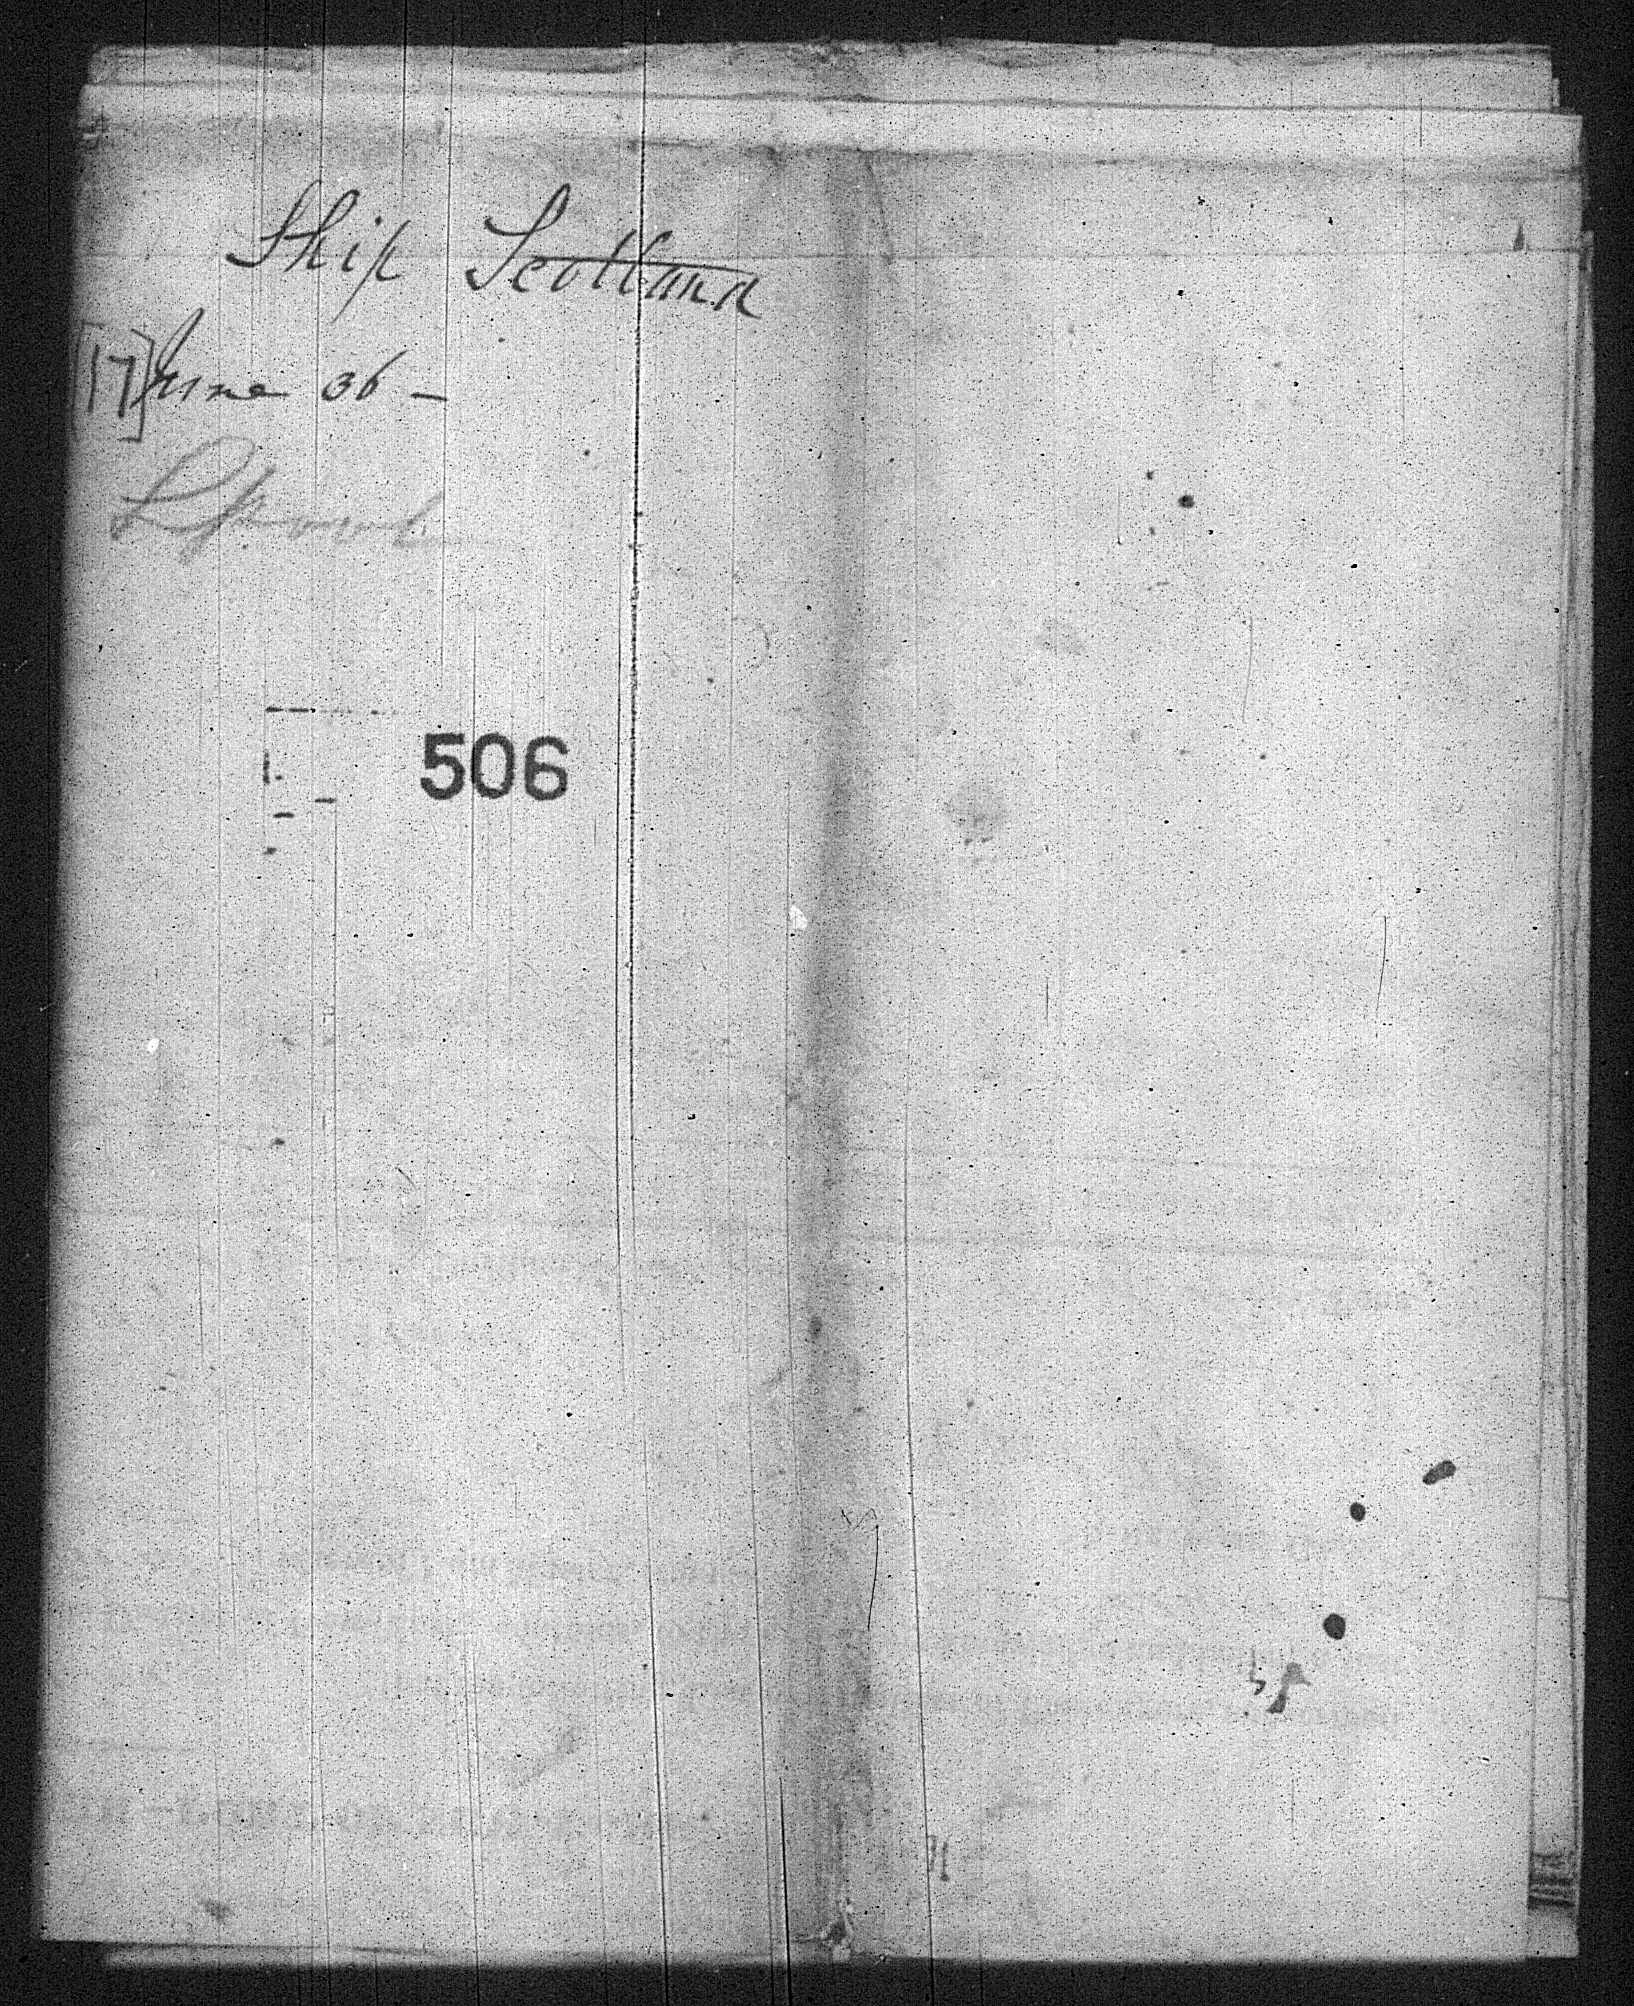 Ship Scotland
[17] June 36 -
L'pool
506